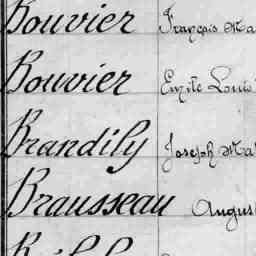 Bouvier François Ma
Bouvier Emile Louis
Brandily Joseph Ma
Brausseau Augus